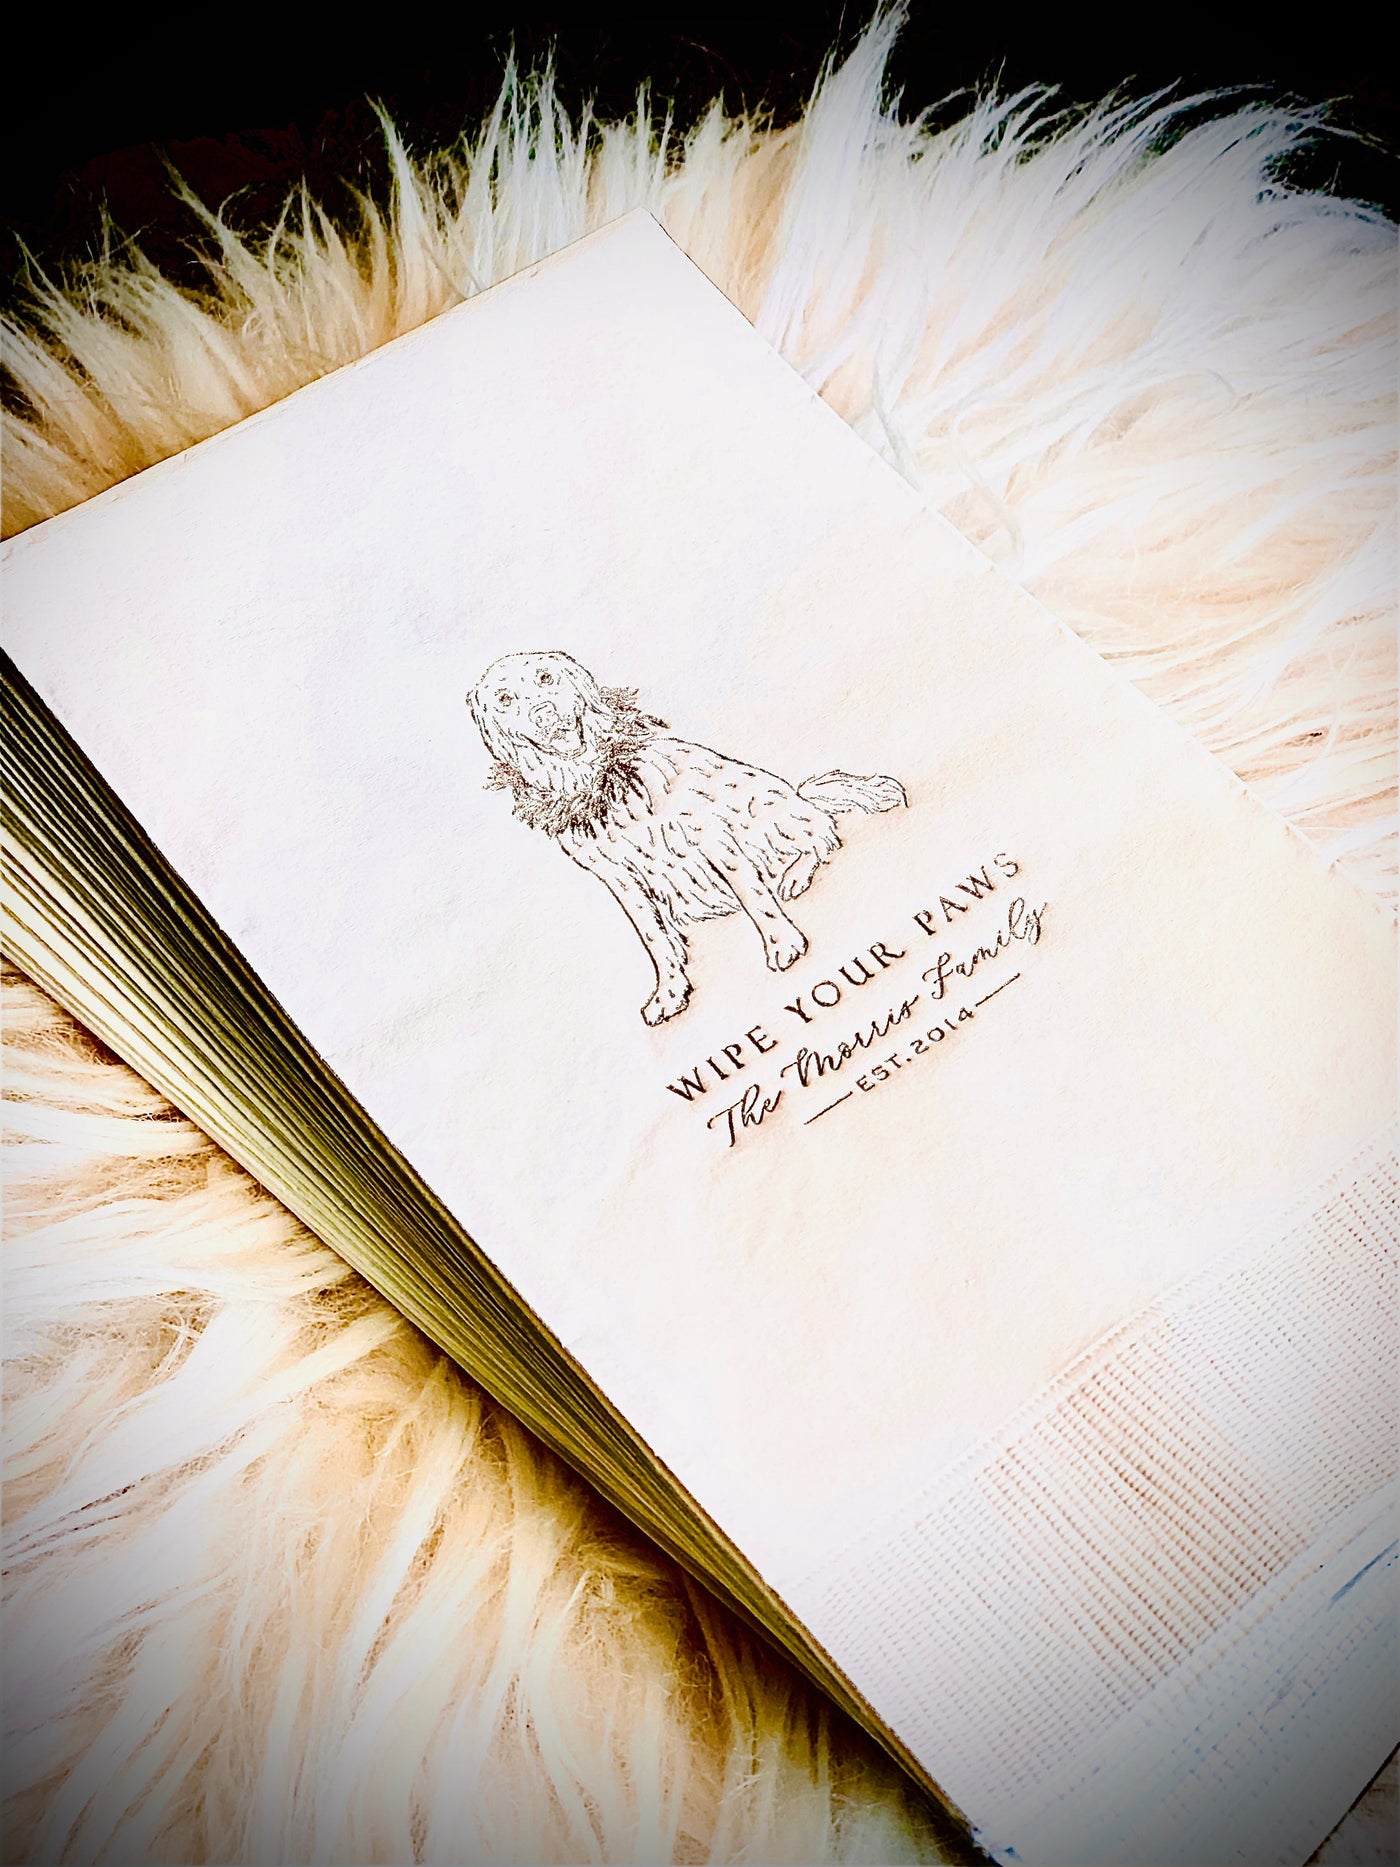 WIPE YOUR PAWS
The Morris Family
EST. 2014